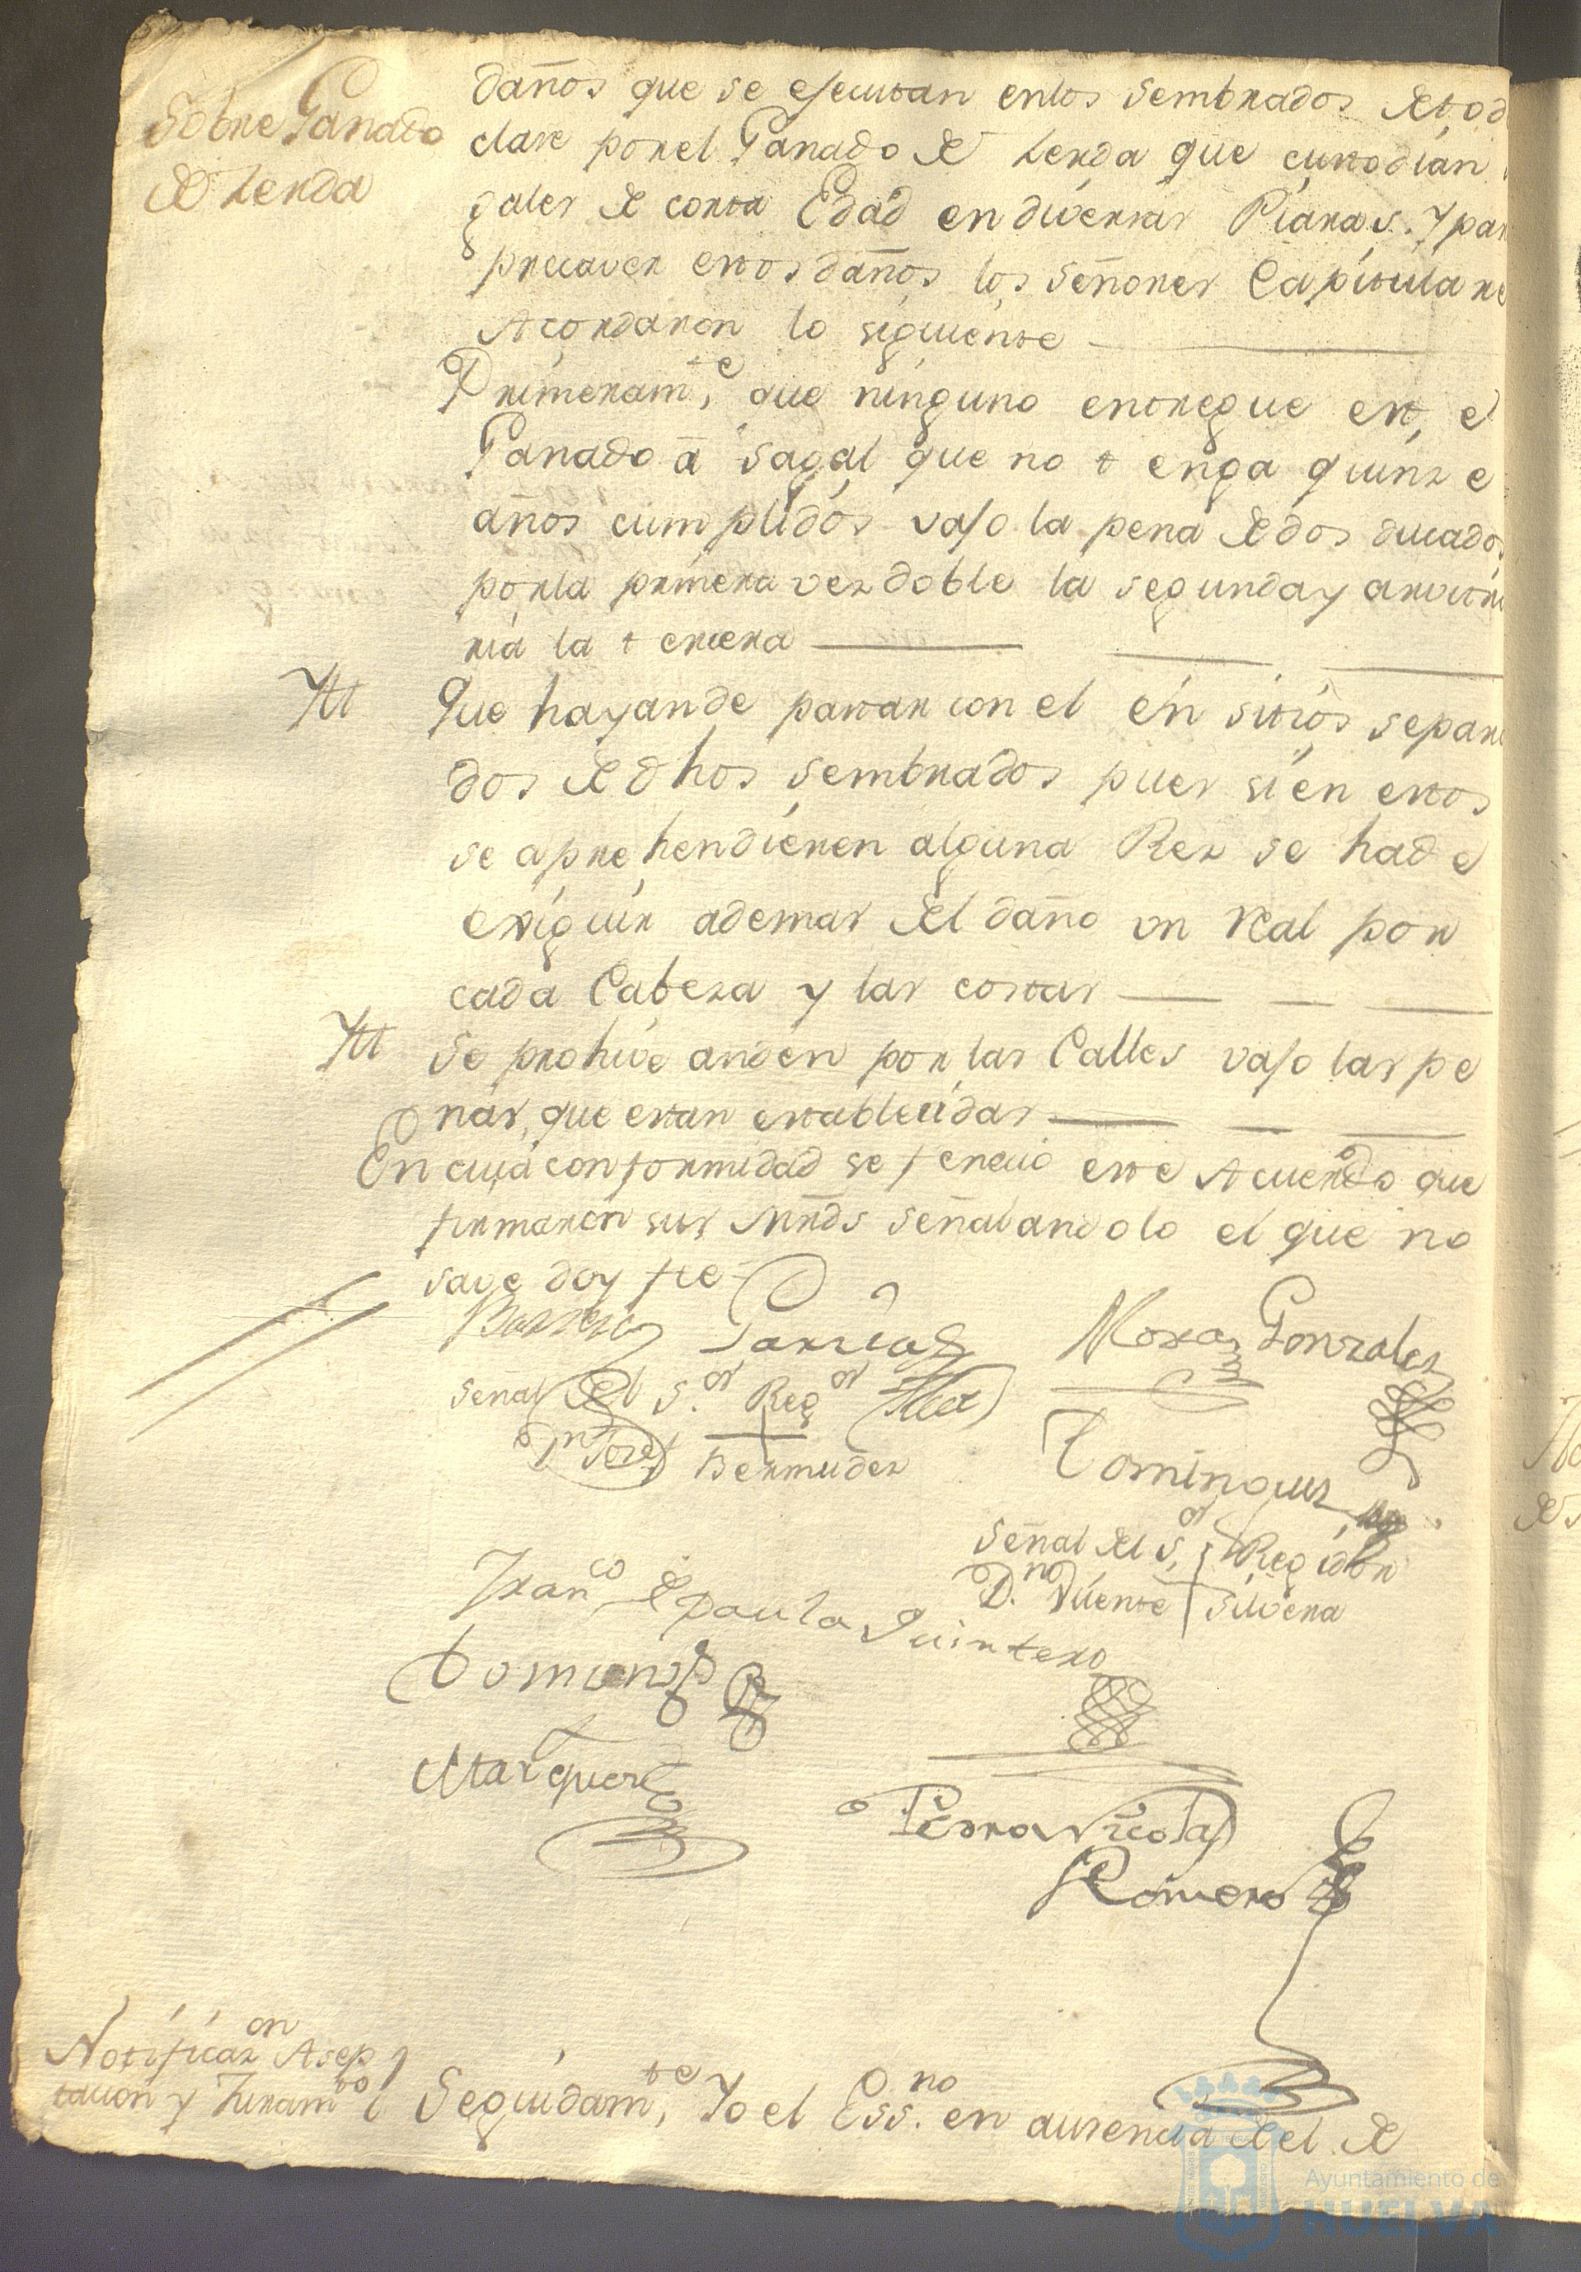 Sobre Ganado
de Zerda
daños que se ejecutan enlos sembrados de tod
clase por el Ganado de Zerda que custodian
gales de corta Edad en diversas Piaras. Y par
precaver estos daños los señores Capitulare
Acordaron lo siguiente
Primeram.te que ninguno entregue este
Ganado a sagal que no tenga quinze
años cumplidos vajo la pena de dos ducados
por la primera vez doble la segunda y arvitra
ria la tercera
Ytt Que hayande pastar con el en sitios separa
dos de dhos sembrados pues si en estos
se aprehendieren alguna Rez se hade
exiguir ademas del daño un real por
cada Cabeza y las costas
Ytt Se prohive anden por las Calles vajo las pe
nas, que estan establecidas
En cuia conformidad se fenecio este Acuerdo que
firmaron sus Mrds señalandolo el que no
save doy fee
Garcia Mora Gonzalez
señal del S.or Reg.or
Dn Josef Bermudez
Dominguez
Señal del S.or Regidor
D.n Vicente Silvera
Fran.co de Paula Quintero
Marquez
Pedro Nicolas
Romero
Notificaz.on Asep
tacion y Juram.to
Seguidam.te Yo el Ess.no en ausencia del de
Ayuntamiento de
HUELVA